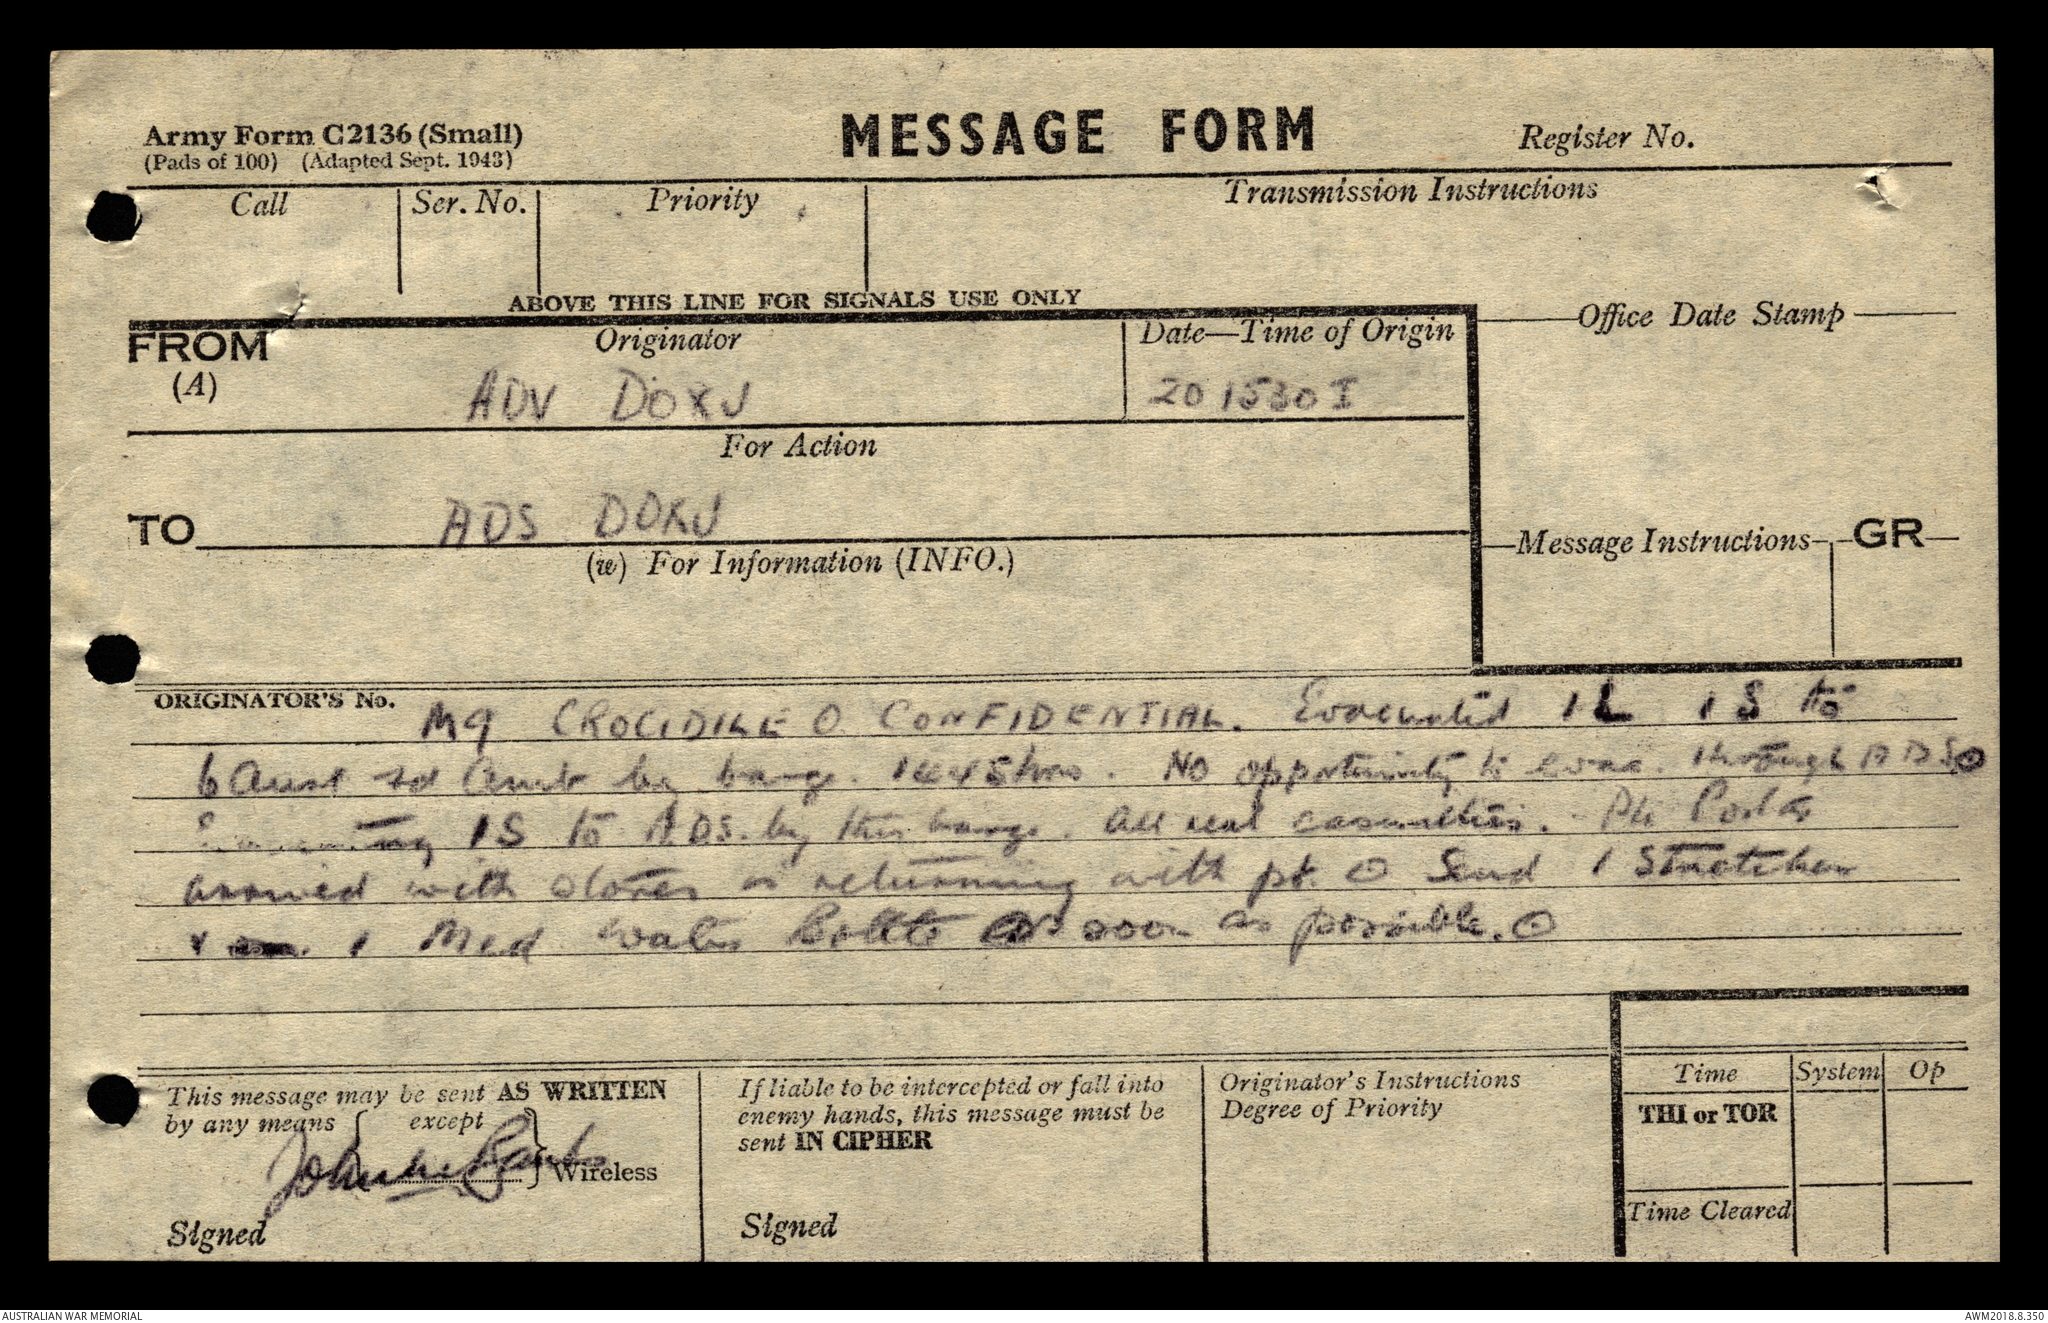 Army Form C2136 (Small)
(Pads of 100) (Adapted Sept. 1943)
MESSAGE FORM
Register No.
Call
Ser. No.
Priority
Transmission Instructions
ABOVE THIS LINE FOR SIGNALS USE ONLY
FROM
(A)
Originator
ADV DOXJ
Date—Time of Origin
201530I
Office Date Stamp
For Action
TO
ADS DOXJ
(w) For Information (INFO.)
Message Instructions
GR
ORIGINATOR'S No.
M9 CROCIDILE O CONFIDENTIAL. Evacuated 1L 1S to
6 Aust Fd Amb by barge. 1445 hrs. No opportunity to evac. through ADS O
1S to ADS. by this barge. All real casualties. Pte
arrived with stores is returning with pt. O Send 1 Stretcher
1 Med water bottle as soon as possible. O
This message may be sent AS WRITTEN
by any means
except
Wireless
John
Signed
If liable to be intercepted or fall into
enemy hands, this message must be
sent IN CIPHER
Signed
Originator's Instructions
Degree of Priority
Time
System
Op
THI or TOR
Time Cleared
AUSTRALIAN WAR MEMORIAL
AWM2018.8.350